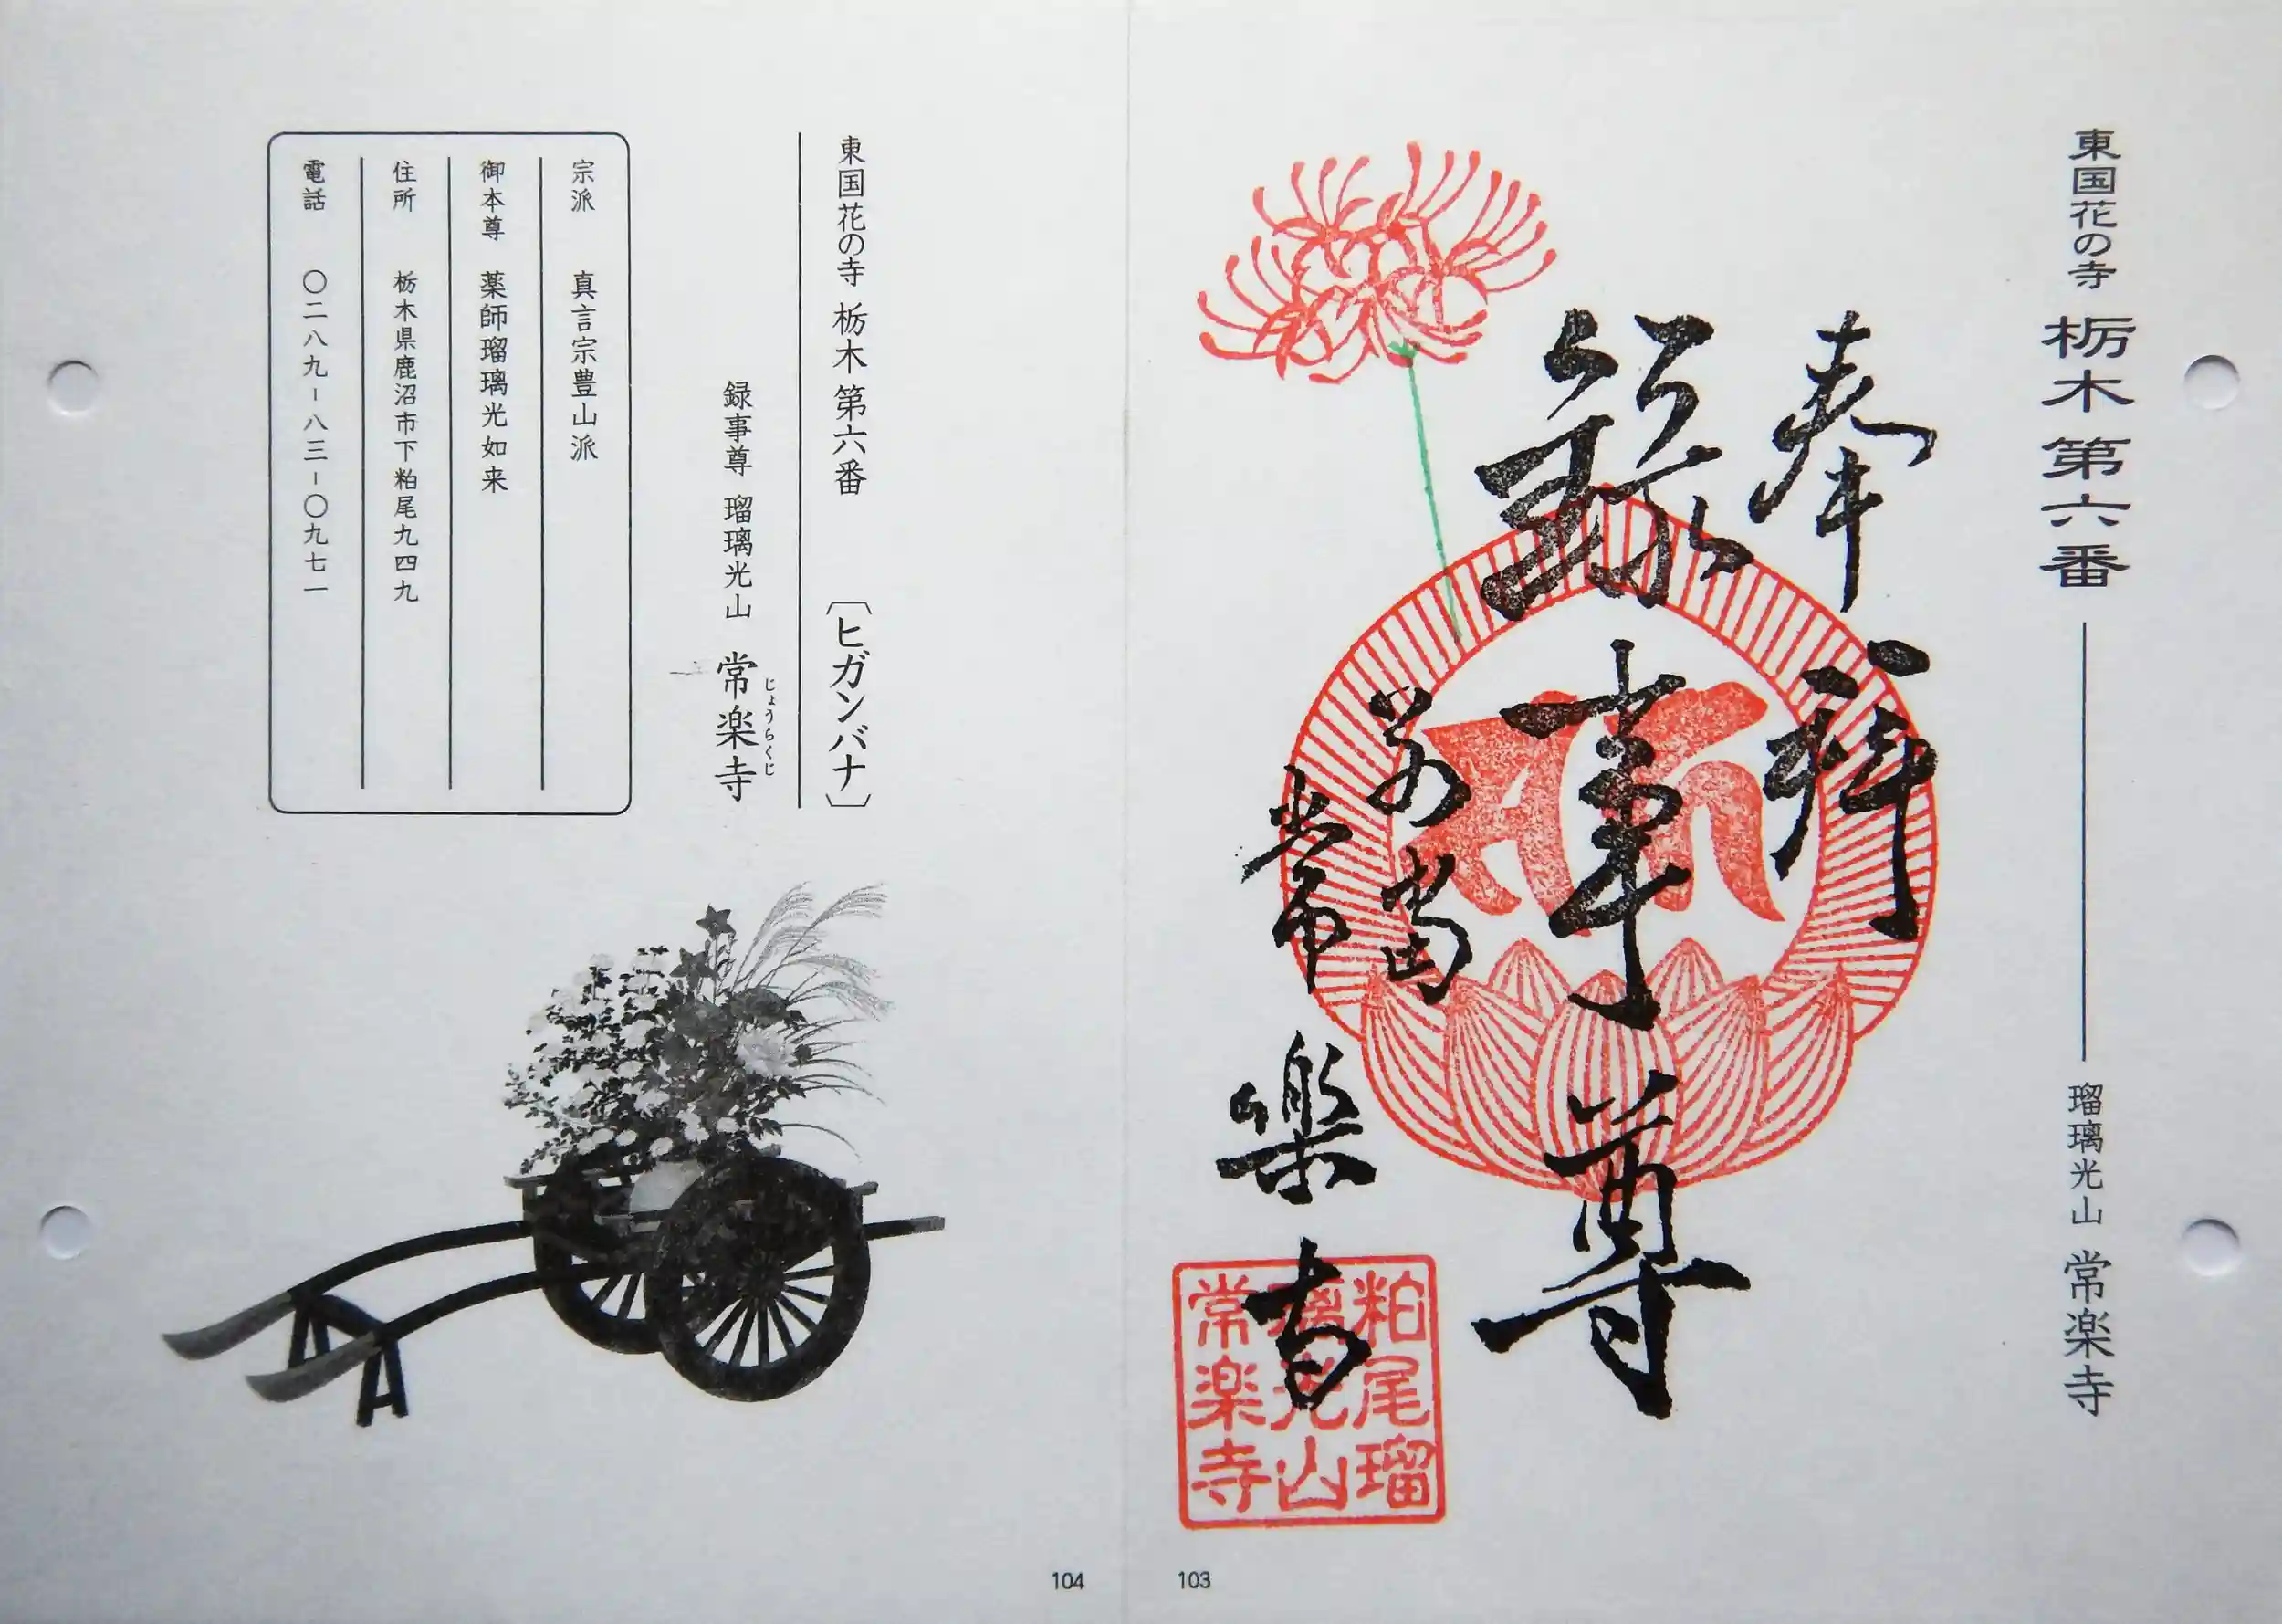 東国花の寺 栃木 第六番 ― 瑠璃光山 常楽寺
奉拝
録事尊
別当
常楽寺
粕尾瑠
璃光山
常楽寺
103
東国花の寺 栃木 第六番 〔ヒガンバナ〕
録事尊 瑠璃光山 常楽寺
じょうらくじ
宗派 真言宗豊山派
御本尊 薬師瑠璃光如来
住所 栃木県鹿沼市下粕尾九四九
電話 〇二八九-八三-〇九七一
104